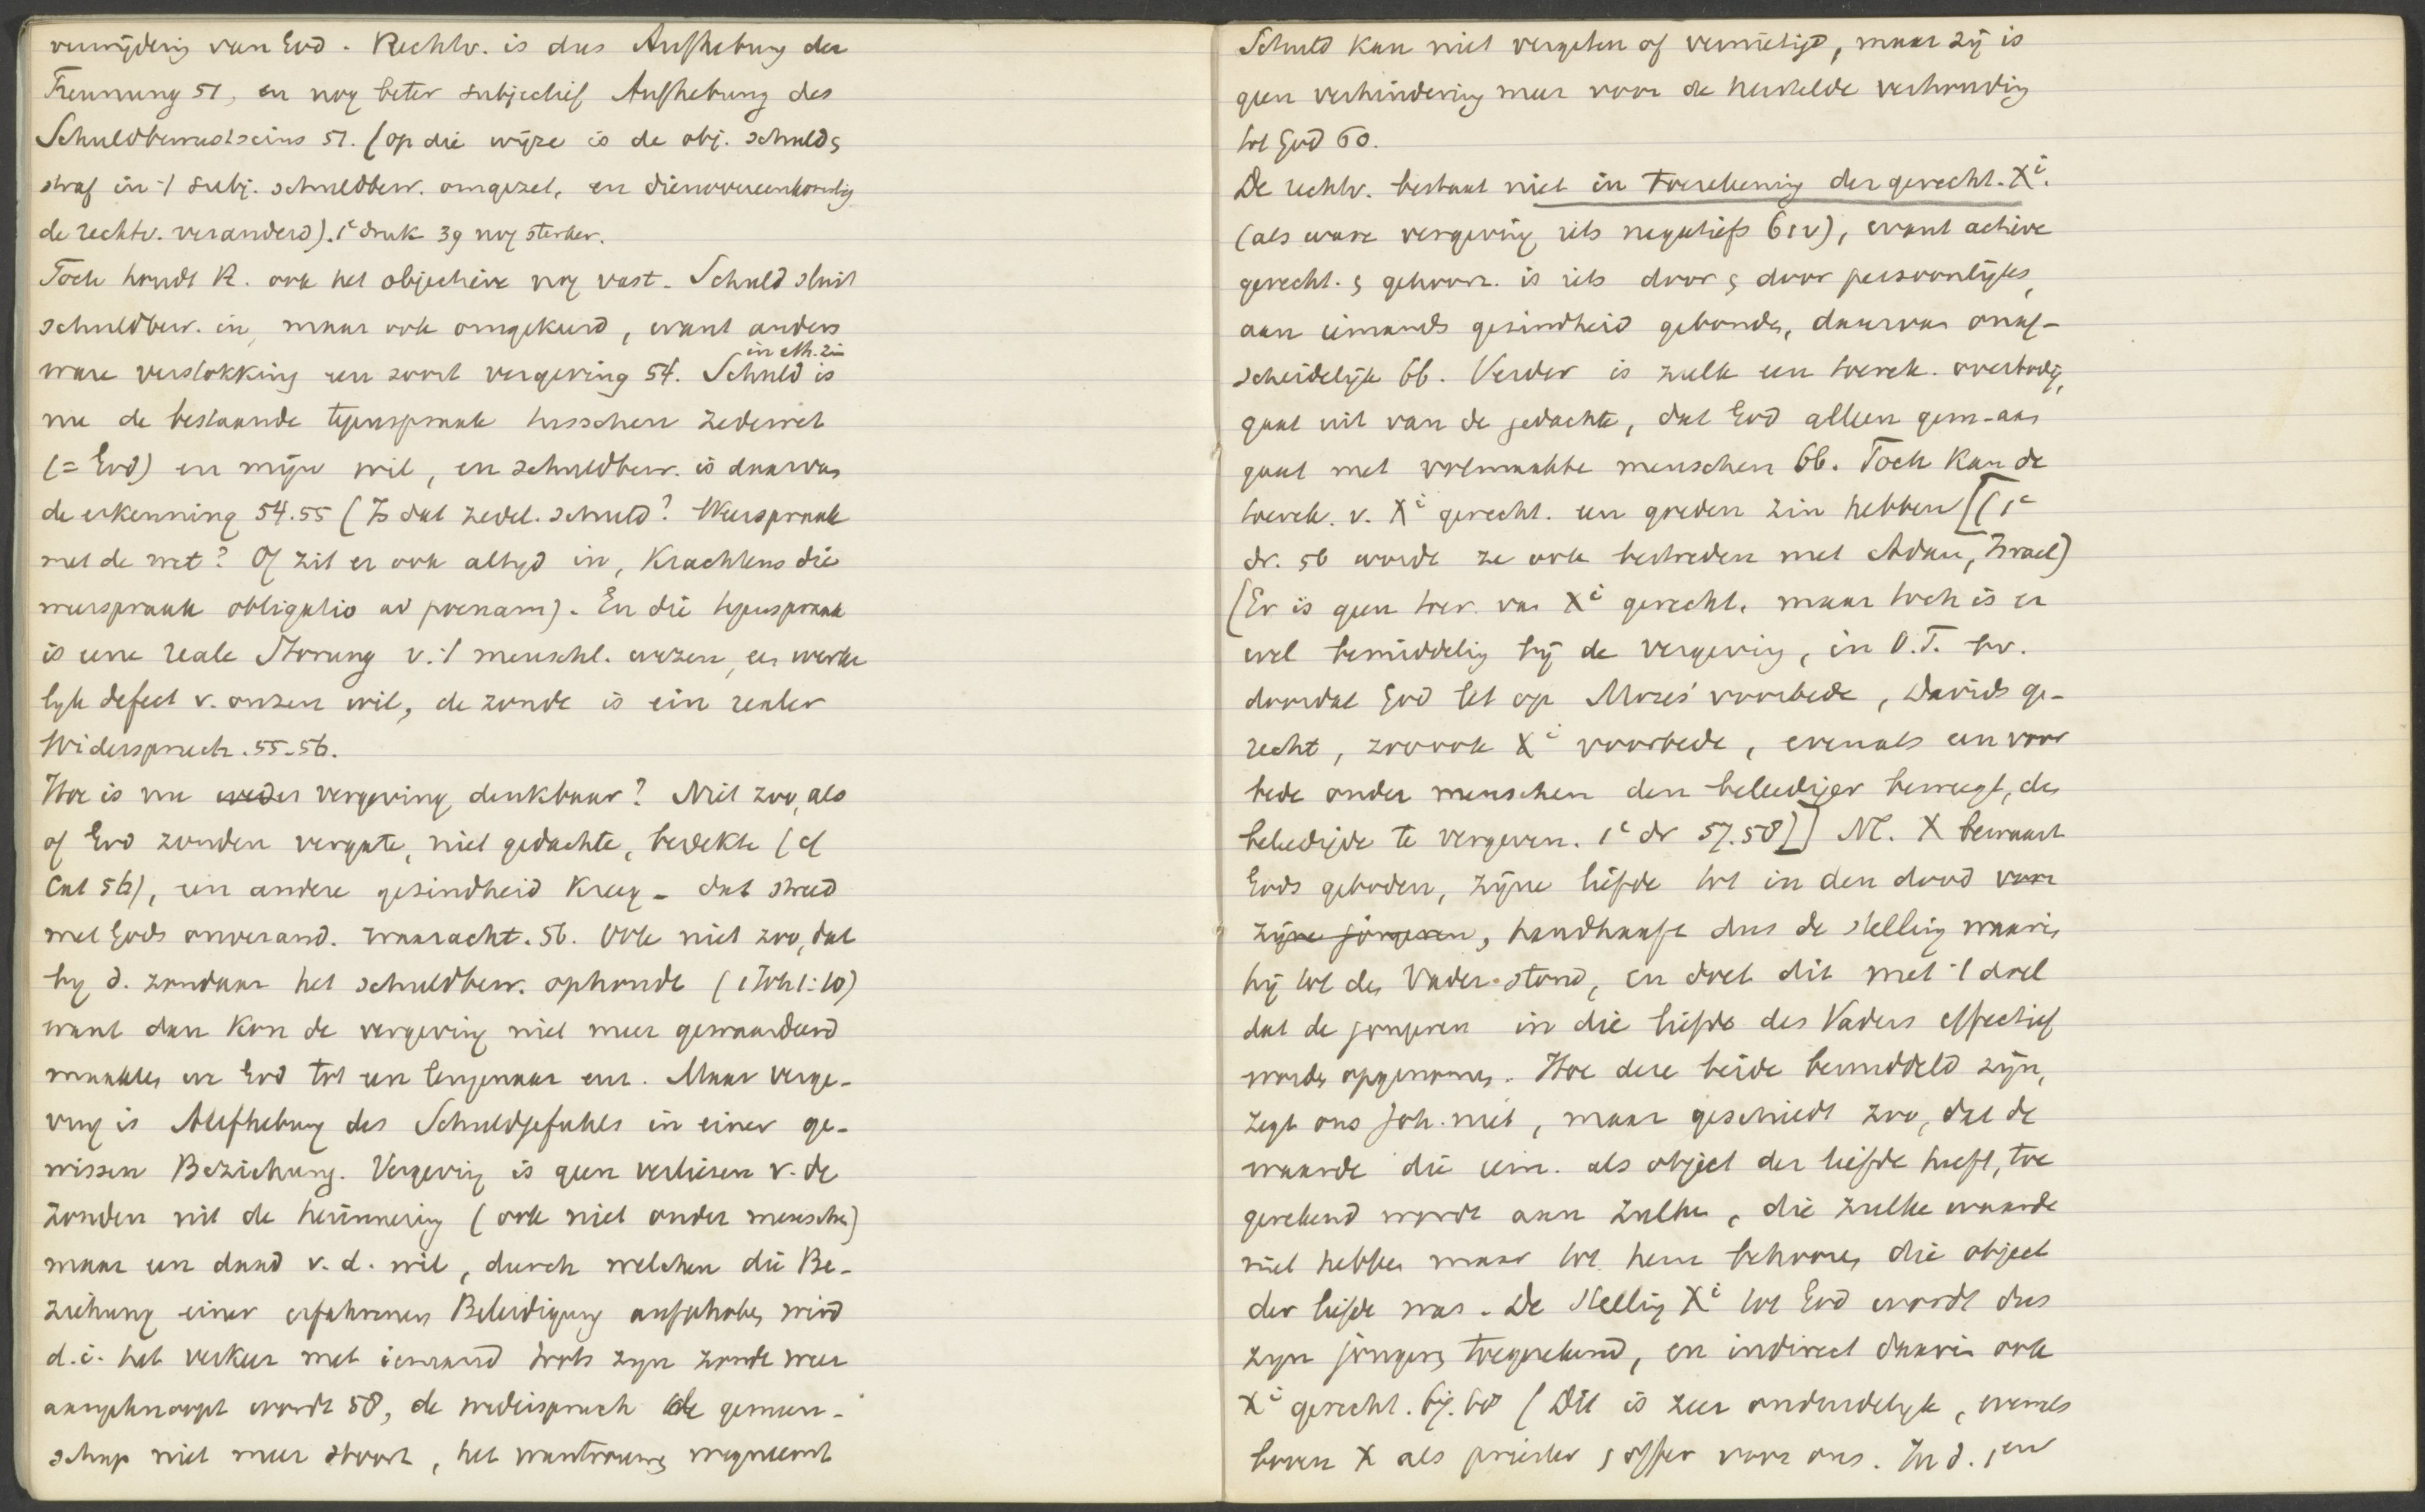 verwijdering van God. Rechtv. is dus Aufhebung der
Trennung 51, en nog beter subjectief Aufhebung des
Schuldbewustseins 51. (op die wijze is de obj. schuld &
straf in 't subj. schuldbew. omgezet, en dienovereenkomstig
de rechtv. veranderd). 1e druk 39 nog sterker.
Toch houdt R. ook het objectieve nog vast. Schuld sluit
schuldbew. in, maar ook omgekeerd, want anders
ware verstokking een soort vergeving 54. Schuld in eth. zin is
nu de bestaande tegenspraak tusschen zedewet
(= God) en mijn wil, en schuldbew. is daarvan
de erkenning 54.55 (Is dat zedel. schuld? Weerspraak
met de wet? Of zit er ook altyd in, krachtens die
weerspraak obligatio ad poenam). En die tegenspraak
is eene reale Störung v. 't menschl. wezen, een werke
lyk defect v. onzen wil, de zonde is ein realer
Widerspruch. 55-56.
Hoe is nu weder vergeving denkbaar? Niet zoo, als
of God zonden vergate, niet gedachte, bedekte (cf
Cat 56), een andere gezindheid kreeg - dat streed
met Gods onverand. waaracht. 56. Ook niet zoo, dat
by d. zondaar het schuldbew. ophoudt (1 Joh 1:10)
want dan kon de vergeving niet meer gewaardeerd
maakten we God tot een leugenaar enz. Maar verge-
ving is Aufhebung des Schuldgefuhls in einer ge-
wissen Beziehung. Vergeving is geen verliezen v. de
zonden uit de herinnering (ook niet onder menschen)
maar een daad v. d. wil, durch welchen die Be-
ziehung einer erfahrenen Beleidigung aufgehoben wird
d.i. het verkeer met iemand trots zyn zonde weer
aangeknoopt wordt 58, de widerspruch de gemeen-
schap niet meer stoort, het wantrouwen wegneemt
Schuld kan niet vergeten of vernietigd, maar zij is
geen verhindering meer voor de herstelde verhouding
tot God 60.
De rechtv. bestaat niet in toerekening der gerecht. Xi.
(als ware vergeving iets negatiefs 61v), want actieve
gerecht. & gehoorz. is iets door & door persoonlijks,
aan iemands gezindheid gebonden, daarvan onaf-
scheidelijk 66. Verder is zulk een toerek. overbodig,
gaat uit van de gedachte, dat God alleen gem. aan
gaat met volmaakte menschen 66. Toch kan de
toerek. v. Xi gerecht. een goeden zin hebben [(1e
dr. 56 wordt ze ook bestreden met Adam, Israel)
(Er is geen toer. van Xi gerecht. maar toch is er
wel bemiddeling bij de vergeving, in O.T. bv.
doordat God let op Mozes' voorbede, Davids ge-
recht, zoo ook Xi voorbede, evenals een voor
bede onder menschen den beleediger beweegt, den
beleedigde te vergeven. 1e dr 57.58)] Nl. X bewaart
Gods geboden, zijne liefde tot in den dood voor
zijne jongeren, handhaaft dus de stelling waarin
hij tot den Vader stond, en doet dit met 't doel
dat de jongeren in die liefde des Vaders effectief
worden opgenomen. Hoe deze beide bemiddeld zijn,
zegt ons Joh. niet, maar geschiedt zoo, dat de
waarde die iem. als object der liefde heeft, toe
gerekend wordt aan zulken, die zulke waarde
niet hebben maar tot hem behooren die object
der liefde was. De stelling Xi tot God wordt dus
zyn jongeren toegerekend, en indirect daarin ook
Xi gerecht. 67.68 (Dit is zeer onduidelyk, evenals
boven X als priester & offer voor ons. In d. 1en